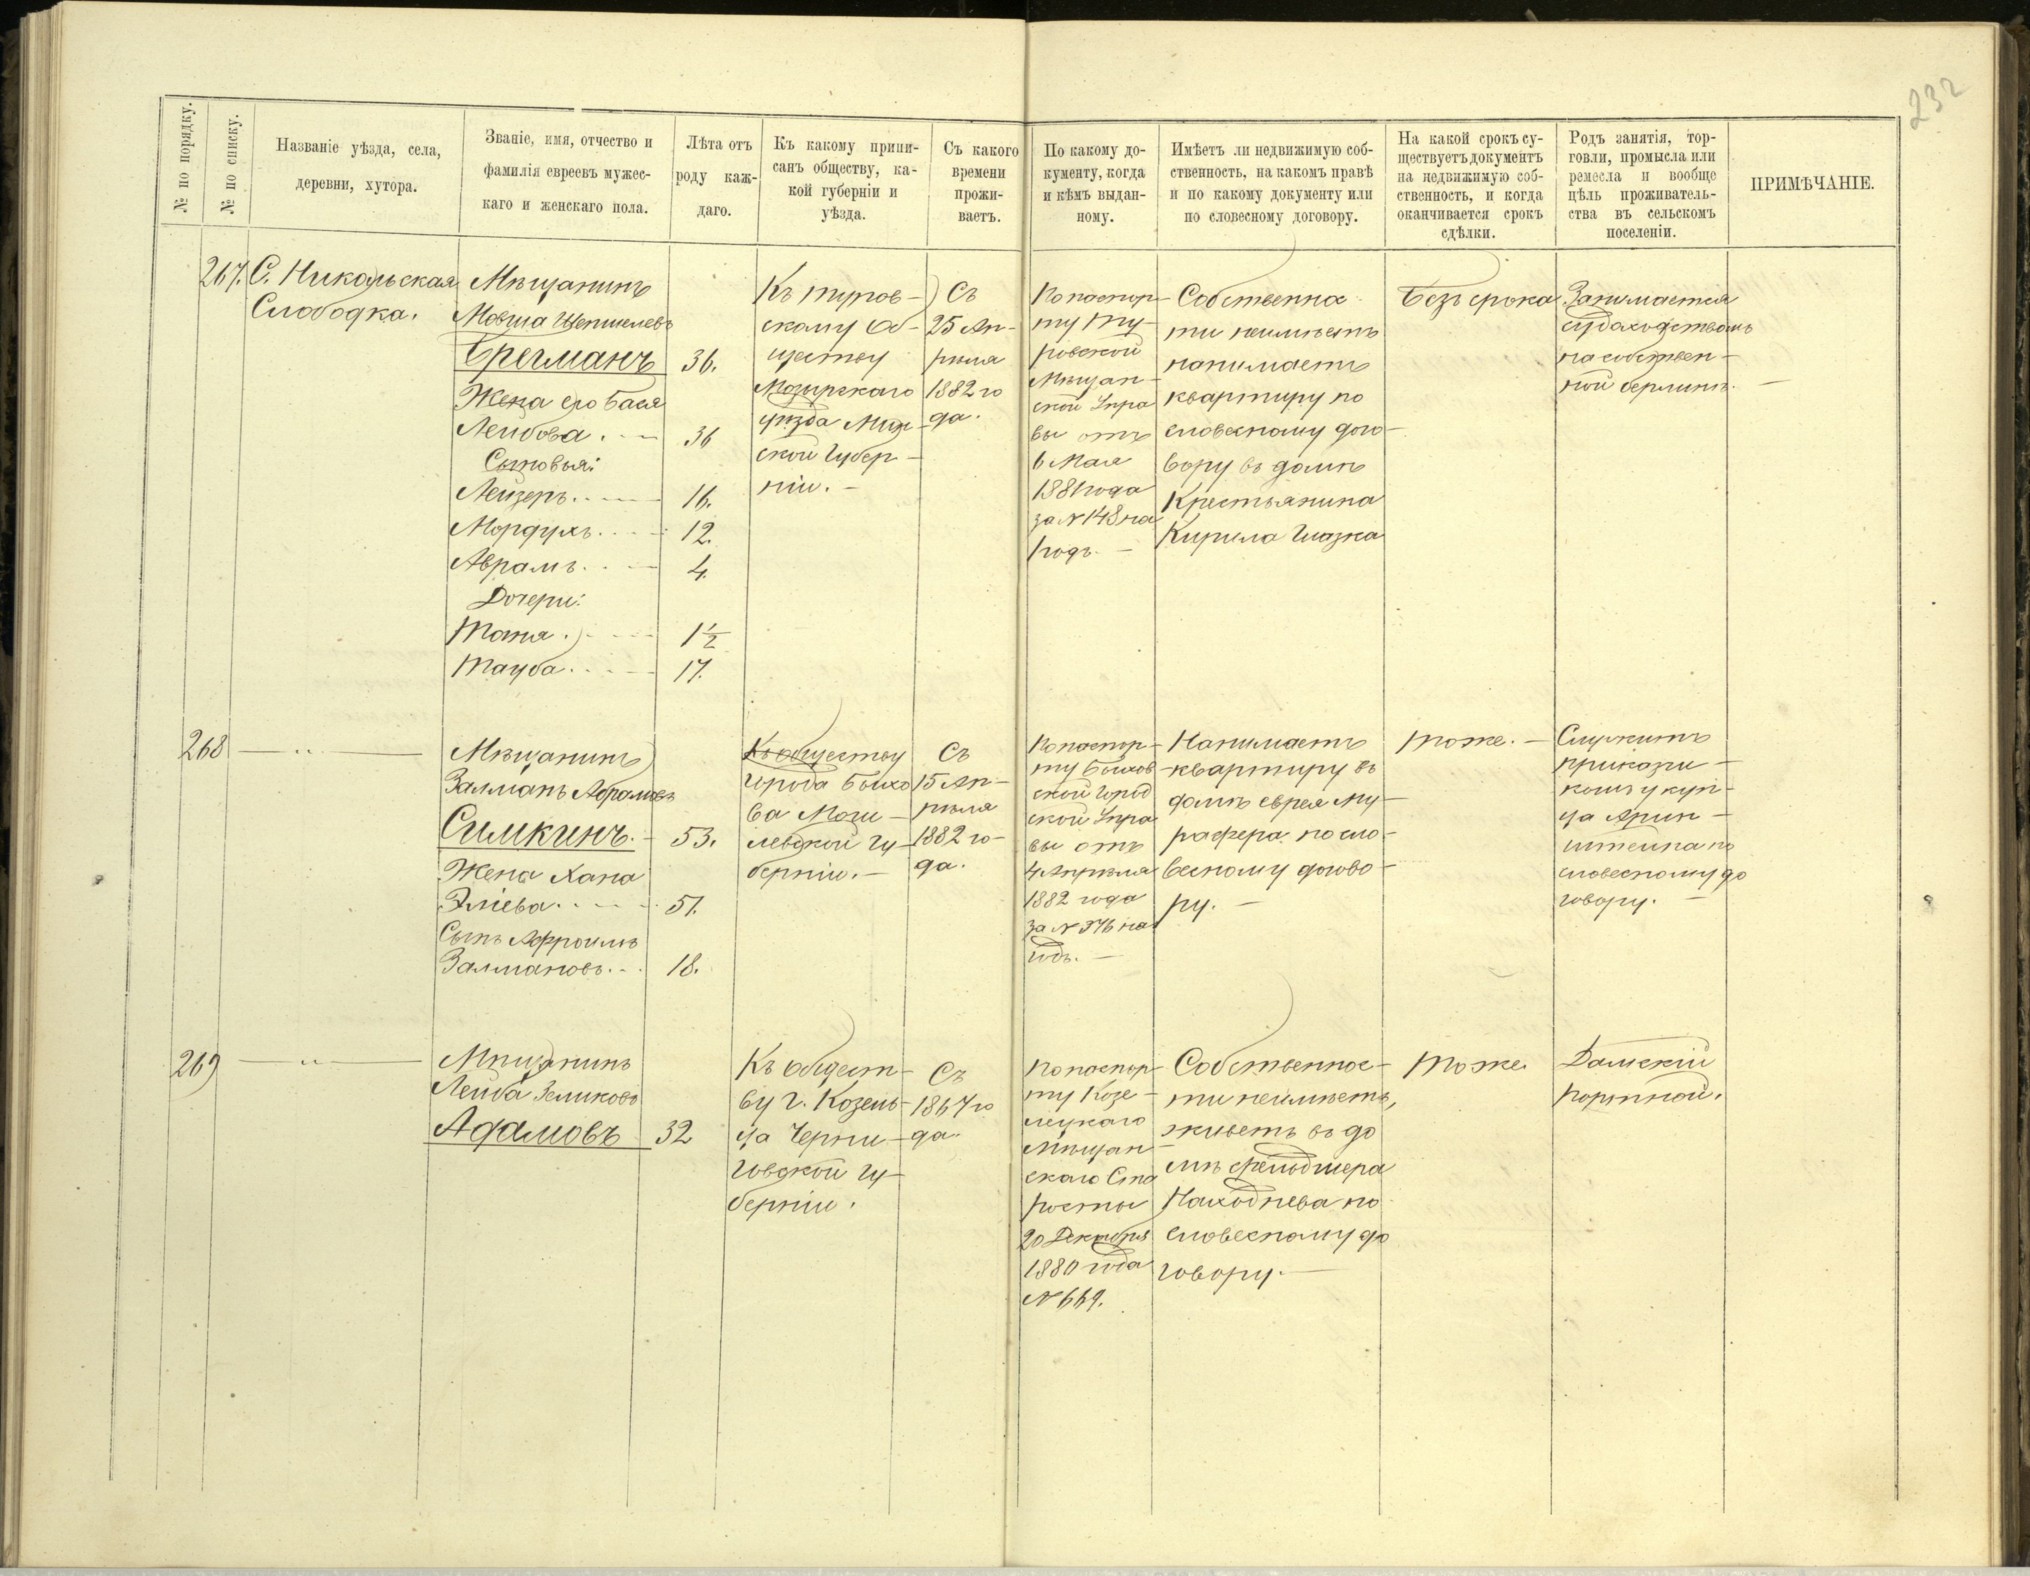 232
№ по порядку.
№ по списку.
Названіе уѣзда, села,
деревни, хутора.
Званіе, имя, отчество и
фамилія евреевъ мужес-
каго и женскаго пола.
Лѣта отъ
роду каж-
даго.
Къ какому припи-
санъ обществу, ка-
кой губерніи и
уѣзда.
Съ какого
времени
прожи-
ваетъ.
По какому до-
кументу, когда
и кѣмъ выдан-
ному.
Имѣетъ ли недвижимую соб-
ственность, на какомъ правѣ
и по какому документу или
по словесному договору.
На какой срокъ су-
ществуетъ документъ
на недвижимую соб-
ственность, и когда
оканчивается срокъ
сдѣлки.
Родъ занятія, тор-
говли, промысла или
ремесла и вообще
цѣль проживатель-
ства въ сельскомъ
поселеніи.
ПРИМѢЧАНІЕ.
267.
С. Никольская
Слободка.
Мѣщанинъ
Мовша
Брегманъ 36.
Жена его Бася
Лейбова. 36
Сыновья:
Лейзеръ. 16.
Мордухъ. 12.
Аврамъ. 4.
Дочери:
Таня. 1½
Тауба. 17.
Къ туров-
скому Об-
ществу
Мозырскаго
уѣзда Мин-
ской Губер-
ніи.
Съ
25 Ап-
рѣля
1882 го
да.
По паспор-
ту Ту-
ровской
Мѣщан-
ской Упра
вы отъ
6 Мая
1881 года
за № 148 на
годъ.
Собственнос
ти неимѣетъ
нанимаетъ
квартиру по
словесному дого-
вору въ домѣ
Крестьянина
Кирила Глазка
Безъ срока
Занимается
судоходствомъ
на собствен-
ной берлинѣ.
268
Мѣщанинъ
Залманъ Абрамовъ
Симкинъ. 53.
Жена Хана
Эліева. 51.
Сынъ Афроимъ
Залмановъ. 18.
Къ обществу
города Быхо
ва Моги-
левской гу-
берніи.
Съ
15 Ап-
рѣля
1882 го-
да.
По паспор-
ту Быхов-
ской Город
ской Упра
вы отъ
4 Апрѣля
1882 года
за № 376 на
годъ.
Нанимаетъ
квартиру въ
домѣ еврея Му-
рафера по сло-
весному догово-
ру.
тоже.
Служитъ
приказчи-
комъ у куп-
ца Арин-
штейна по
словесному до
говору.
269
Мѣщанинъ
Лейба Зеликовъ
Адамовъ 32
Къ общест-
ву г. Козель-
ца Черни-
говской гу-
берніи.
Съ
1867 го
да.
По паспор-
ту Козе-
лецкаго
Мѣщан-
скаго Ста
росты
20 Декабря
1880 года
№ 669.
Собственнос-
ти неимѣетъ,
живетъ въ до
мѣ фельдшера
Находнева по
словесному до
говору.
тоже.
Дамскій
портной.